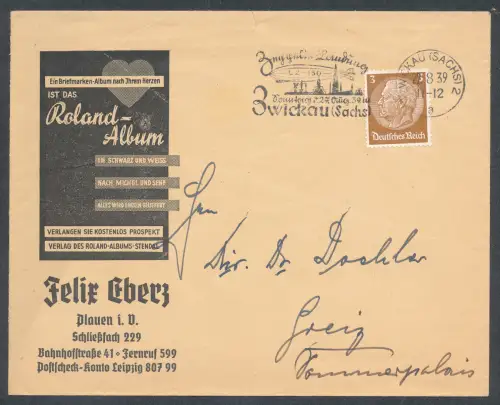 Ein Briefmarken-Album nach Ihrem Herzen
IST DAS
Roland-
Album
IN SCHWARZ UND WEISS
NACH MICHEL UND SENF
VERLANGEN SIE KOSTENLOS PROSPEKT
VERLAG DES ROLAND-ALBUMS-STENDAL
Felix Eberz
Plauen i. V.
Schließfach 229
Bahnhofstraße 41 • Fernruf 599
Postscheck-Konto Leipzig 807 99
Zeppelin-Landung
LZ 130
Zwickau (Sachs)
ZWICKAU (SACHS) 2
8 39
-12
a
3 3
Deutsches Reich
Dir. Dr.
Greiz
Sommerpalais